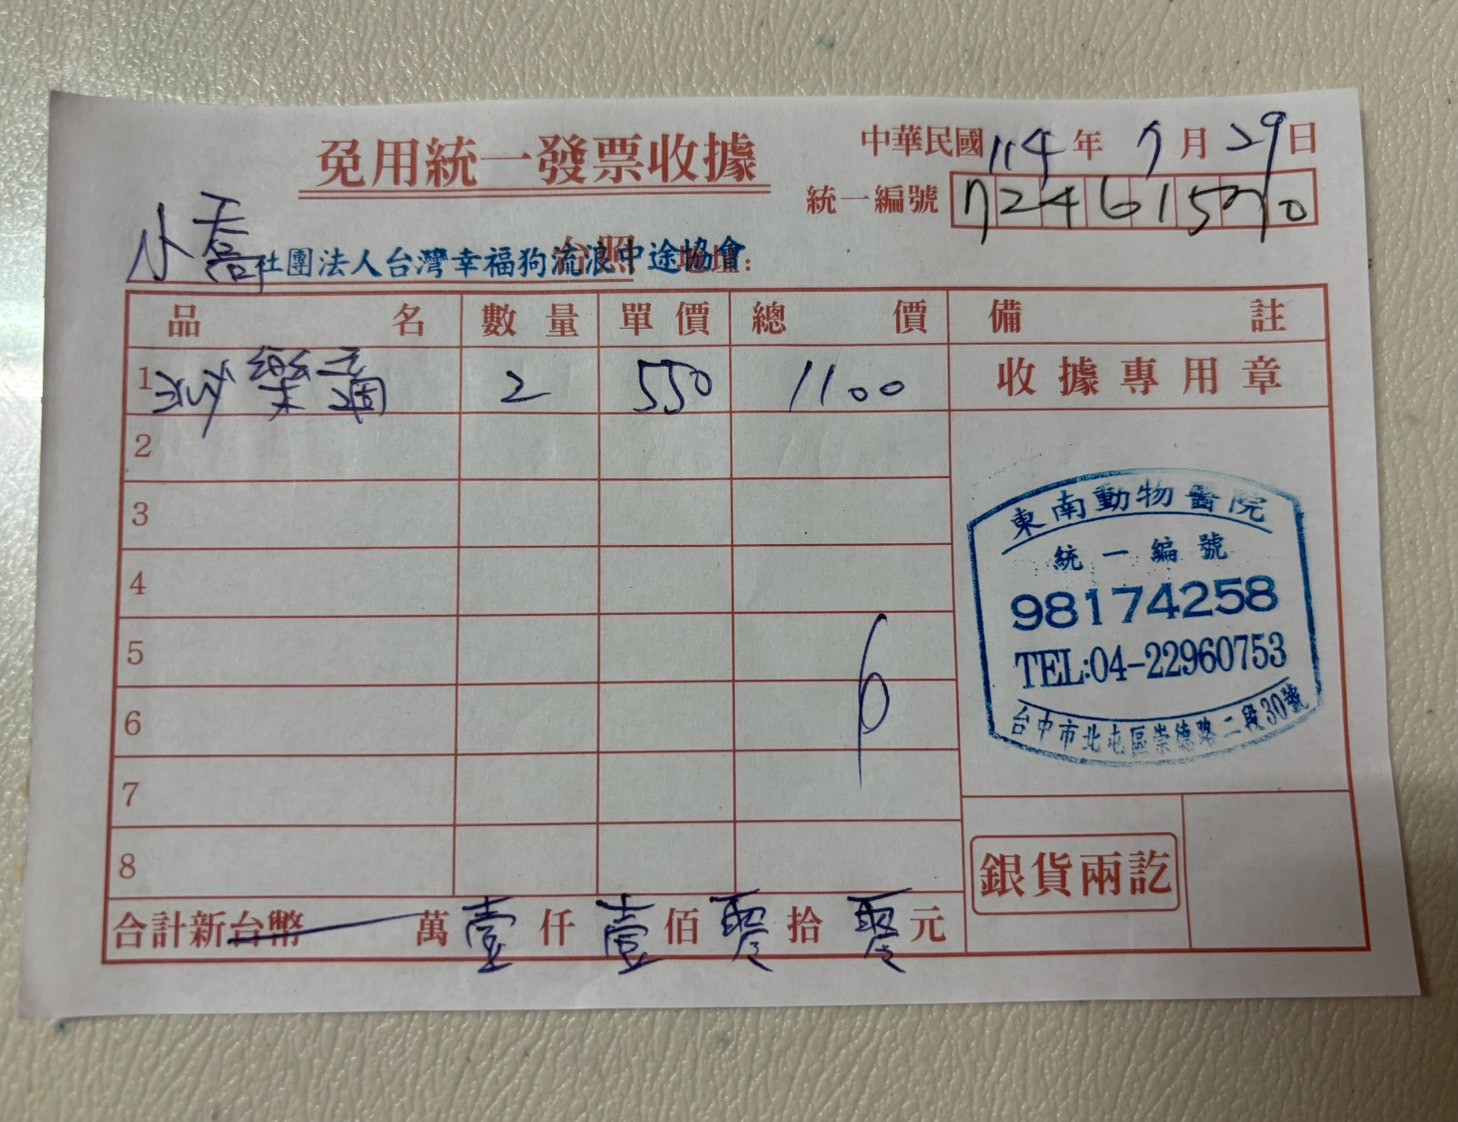 免用統一發票收據
中華民國114年7月29日
統一編號 72461570
小喬 社團法人台灣幸福狗流浪中途協會
台照 地址:
品名 數量 單價 總價 備註
1 樂適 2 550 1100 收據專用章
2
3
4
5
6
7
8
東南動物醫院
統一編號
98174258
TEL:04-22960753
台中市北屯區崇德路二段30號
銀貨兩訖
合計新台幣 萬壹仟壹佰零拾零元